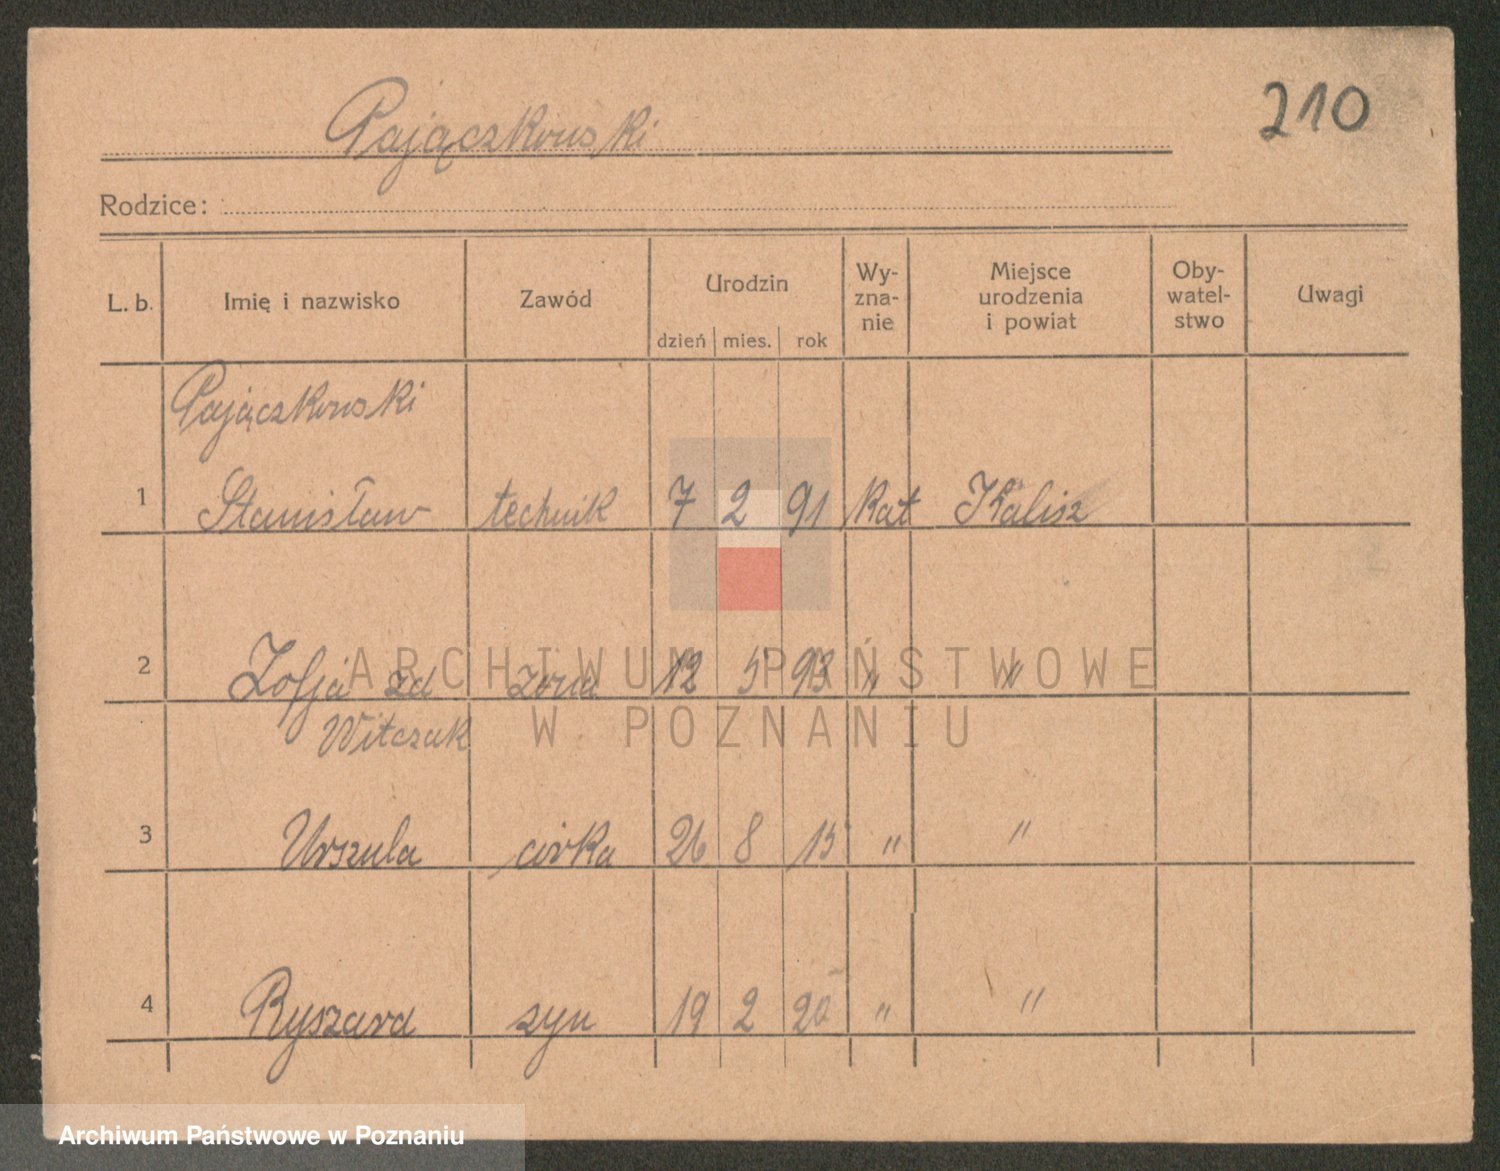 210
Pajączkowski
Rodzice:
L. b. Imię i nazwisko Zawód Urodzin dzień mies. rok Wy-zna-nie Miejsce urodzenia i powiat Oby-watel-stwo Uwagi
Pajączkowski
1 Stanisław technik 7 2 91 Kat Kalisz
2 Zofja zd żona 12 5 93 " "
Witczak
3 Urszula córka 26 8 15 " "
4 Ryszard syn 19 2 20 " "
ARCHIWUM PAŃSTWOWE
W POZNANIU
Archiwum Państwowe w Poznaniu